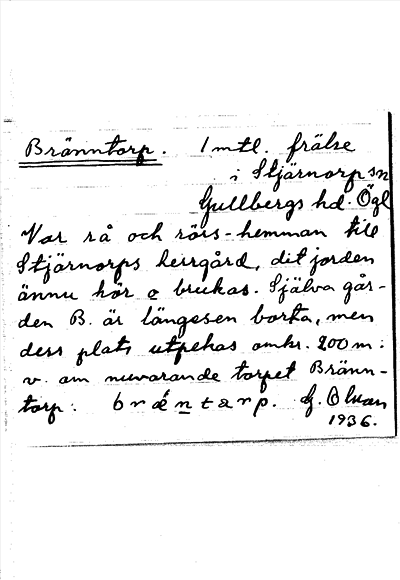 Bränntorp. 1 mtl. frälse
i Stjärnorp sn
Gullbergs hd. Ögl
Var rå och rörs-hemman till
Stjärnorps herrgård, dit jorden
ännu hör o brukas. Själva går-
den B. är längesen borta, men
dess plats utpekas omkr. 200 m.
v. om nuvarande torpet Bränn-
torp. brǽntarp. G. Olson
1936.